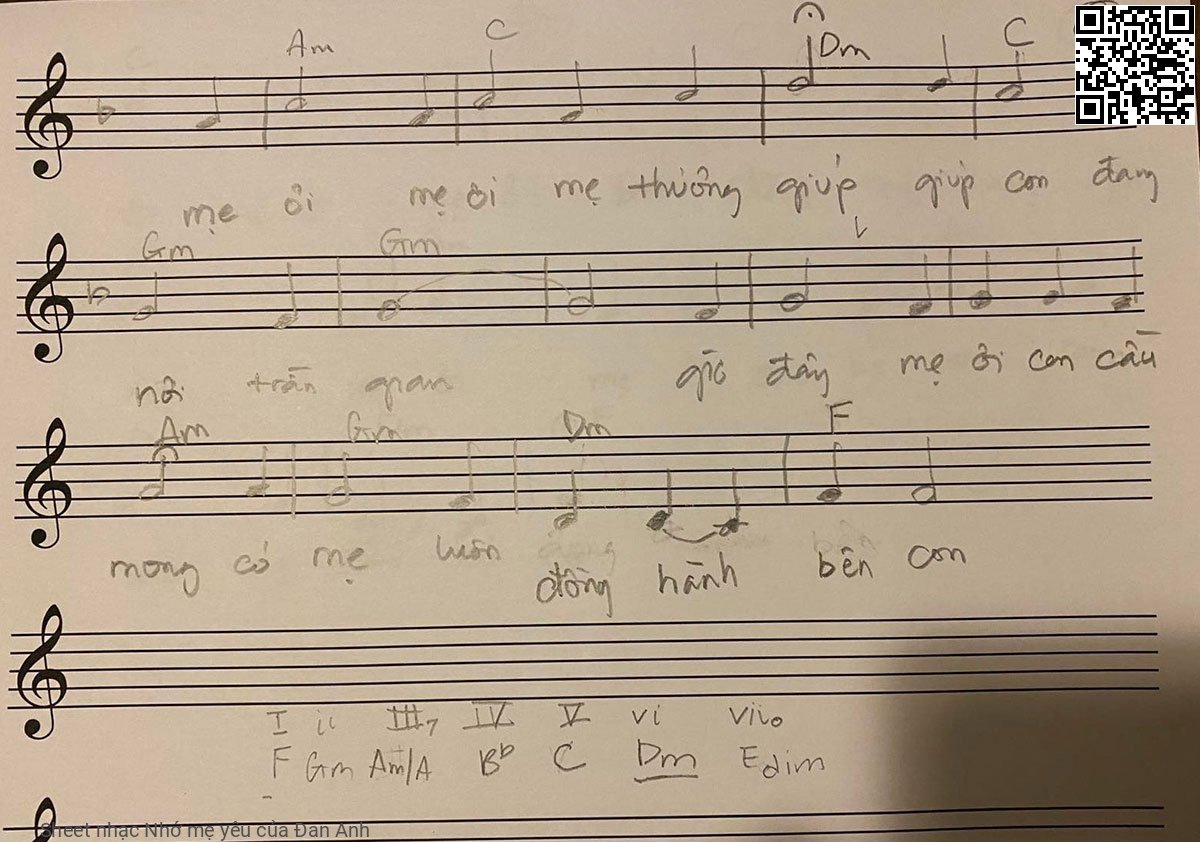 Am C Dm C
mẹ ôi mẹ ôi mẹ thương giúp giúp con đang
Gm Gm
nơi trần gian giờ đây mẹ ôi con cầu
Am Gm Dm F
mong có mẹ luôn đồng hành bên con
I ii III7 IV V vi viio
F Gm Am/A Bb C Dm Edim
Sheet nhạc Nhớ mẹ yêu của Đan Anh